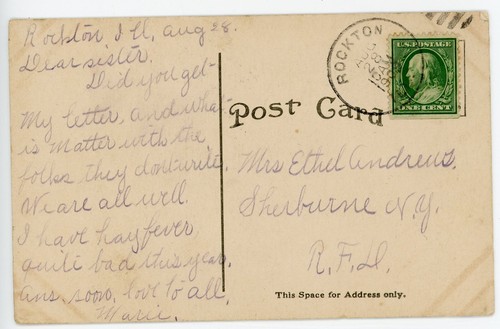 Rockton Ill, Aug 28.
Dear sister.
Did you get
My letter, and what
is Matter with the
folks they dont write.
We are all well.
I have hayfever
quite bad this year.
Ans. soon, love to all,
Marie.
ROCKTON
AUG
28
AM
U.S. POSTAGE
ONE CENT
Post Card
Mrs Ethel Andrews.
Sherburne N.Y.
R.F.D.
This Space for Address only.